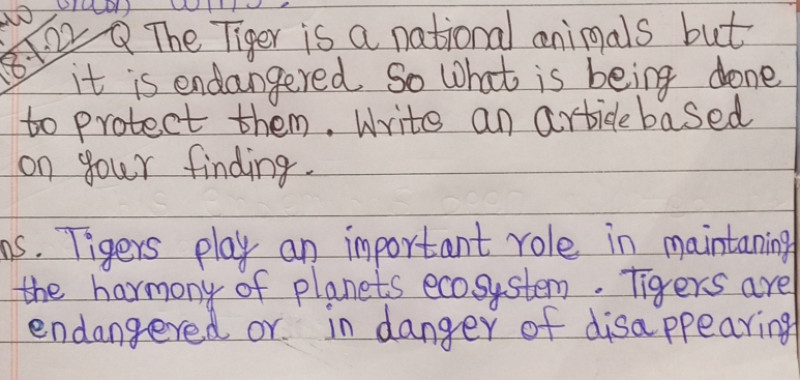 8.1.22 Q The Tiger is a national animals but
it is endangered So What is being done
to protect them. Write an artide based
on your finding.
ns. Tigers play an important role in maintaning
the harmony of planets ecosystem. Tigers are
endangered or in danger of disappearing